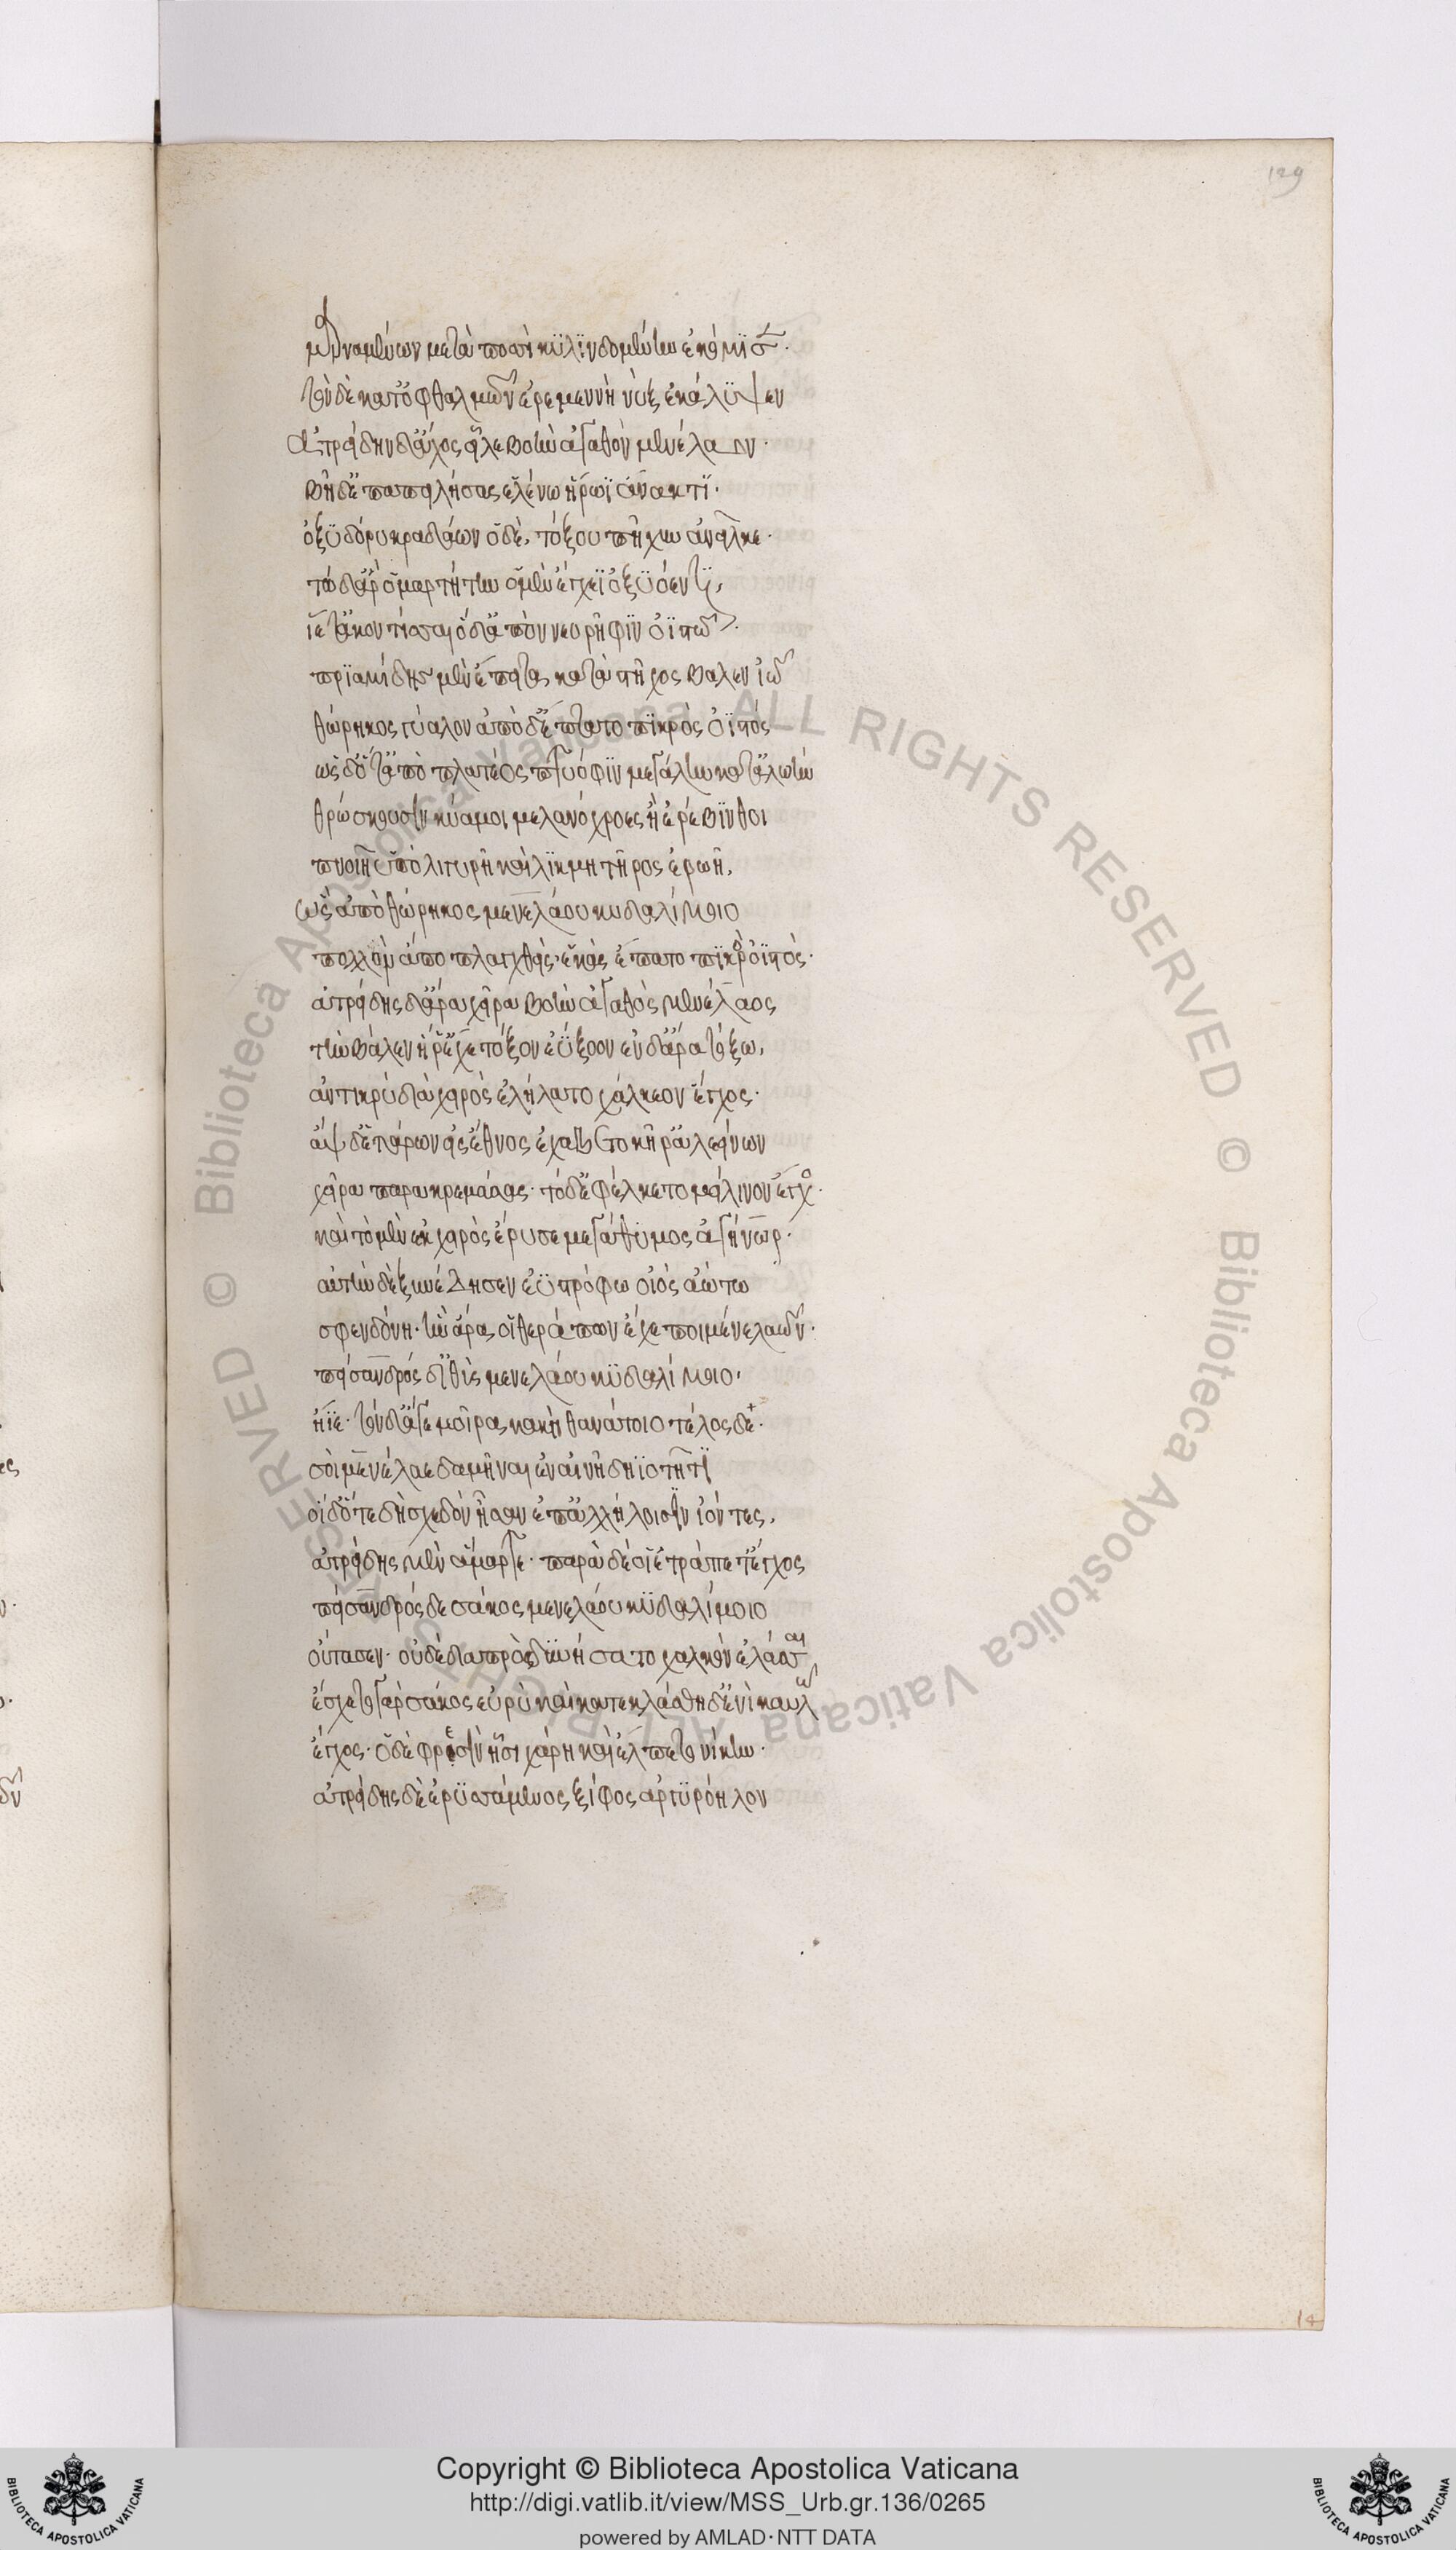 129
μαρναμένων μετὰ ποσσὶ κυλινδομένην ἐκόμισσε·
τὸν δὲ κατ' ὀφθαλμῶν ἐρεμεννὴ νὺξ ἐκάλυψεν
ἀτρείδην δ' ἄχος εἷλε βοὴν ἀγαθὸν μενέλαον·
βῆ δ' ἐπαπειλήσας ἑλένω ἥρωϊ ἄνακτι·
ὀξὺ δόρυ κραδάων ὁ δὲ, τόξου πῆχυν ἄνειλκε·
τὼ δ' ἄρ' ὁμαρτήτην ὁ μὲν ἔγχεϊ ὀξυόεντι,
ἵετ' ἀκοντίσσαι ὁ δ' ἀπὸ νευρῆφιν ὀϊστῶ·
πριαμίδης μὲν ἔπειτα κατὰ στῆθος βάλεν ἰῶ
θώρηκος γύαλον ἀπὸ δ' ἔπτατο πικρὸς ὀϊστός
ὡς δ' ὅτ' ἀπὸ πλατέος πτυόφιν μεγάλην κατ' ἀλωὴν
θρώσκουσιν κύαμοι μελανόχροες ἢ ἐρέβινθοι
πνοιῇ ὕπο λιγυρῇ καὶ λικμητῆρος ἐρωῇ,
ὣς ἀπὸ θώρηκος μενελάου κυδαλίμοιο
πολλὸν ἀποπλαγχθεὶς ἑκὰς ἔπτατο πικρὸς ὀϊστός·
ἀτρείδης δ' ἄρα χεῖρα βοὴν ἀγαθὸς μενέλαος
τὴν βάλεν ἥ ῥ' ἔχε τόξον ἐΰξοον ἐν δ' ἄρα τόξω,
ἀντικρὺ διὰ χειρὸς ἐλήλατο χάλκεον ἔγχος·
ἂψ δ' ἑτάρων εἰς ἔθνος ἐχάζετο κῆρ' ἀλεείνων
χεῖρα παρακρεμάσας· τὸ δ' ἐφέλκετο μείλινον ἔγχος·
καὶ τὸ μὲν ἐκ χειρὸς ἔρυσε μεγάθυμος ἀγήνωρ·
αὐτὴν δὲ ξυνέδησεν ἐϋστρόφω οἰὸς ἀώτω
σφενδόνη· ἣν ἄρα οἱ θεράπων ἔχε ποιμένι λαῶν·
πείσανδρος δ' ἰθὺς μενελάου κυδαλίμοιο,
ἤϊε· τὸν δ' ἄγε μοῖρα κακὴ θανάτοιο τέλος δε·
σοὶ μενέλαε δαμῆναι ἐν αἰνῇ δηϊοτῆτι
οἱ δ' ὅτε δὴ σχεδὸν ἦσαν ἐπ' ἀλλήλοισιν ἰόντες,
ἀτρείδης μὲν ἅμαρτε· παραὶ δέ οἱ ἐτράπετ' ἔγχος
πείσανδρος δὲ σάκος μενελάου κυδαλίμοιο
οὔτασεν· οὐδὲ διαπρὸ δυνήσατο χαλκὸν ἐλάσσαι
ἔσχετο γὰρ σάκος εὐρὺ καὶ κατεκλάσθη δ' ἐνὶ καυλῶ
ἔγχος· ὁ δὲ φρεσὶν ᾗσι χάρη καὶ ἔλπετο νίκην·
ἀτρείδης δὲ ἐρυσσάμενος ξίφος ἀργυρόηλον
14
Copyright © Biblioteca Apostolica Vaticana
http://digi.vatlib.it/view/MSS_Urb.gr.136/0265
powered by AMLAD·NTT DATA